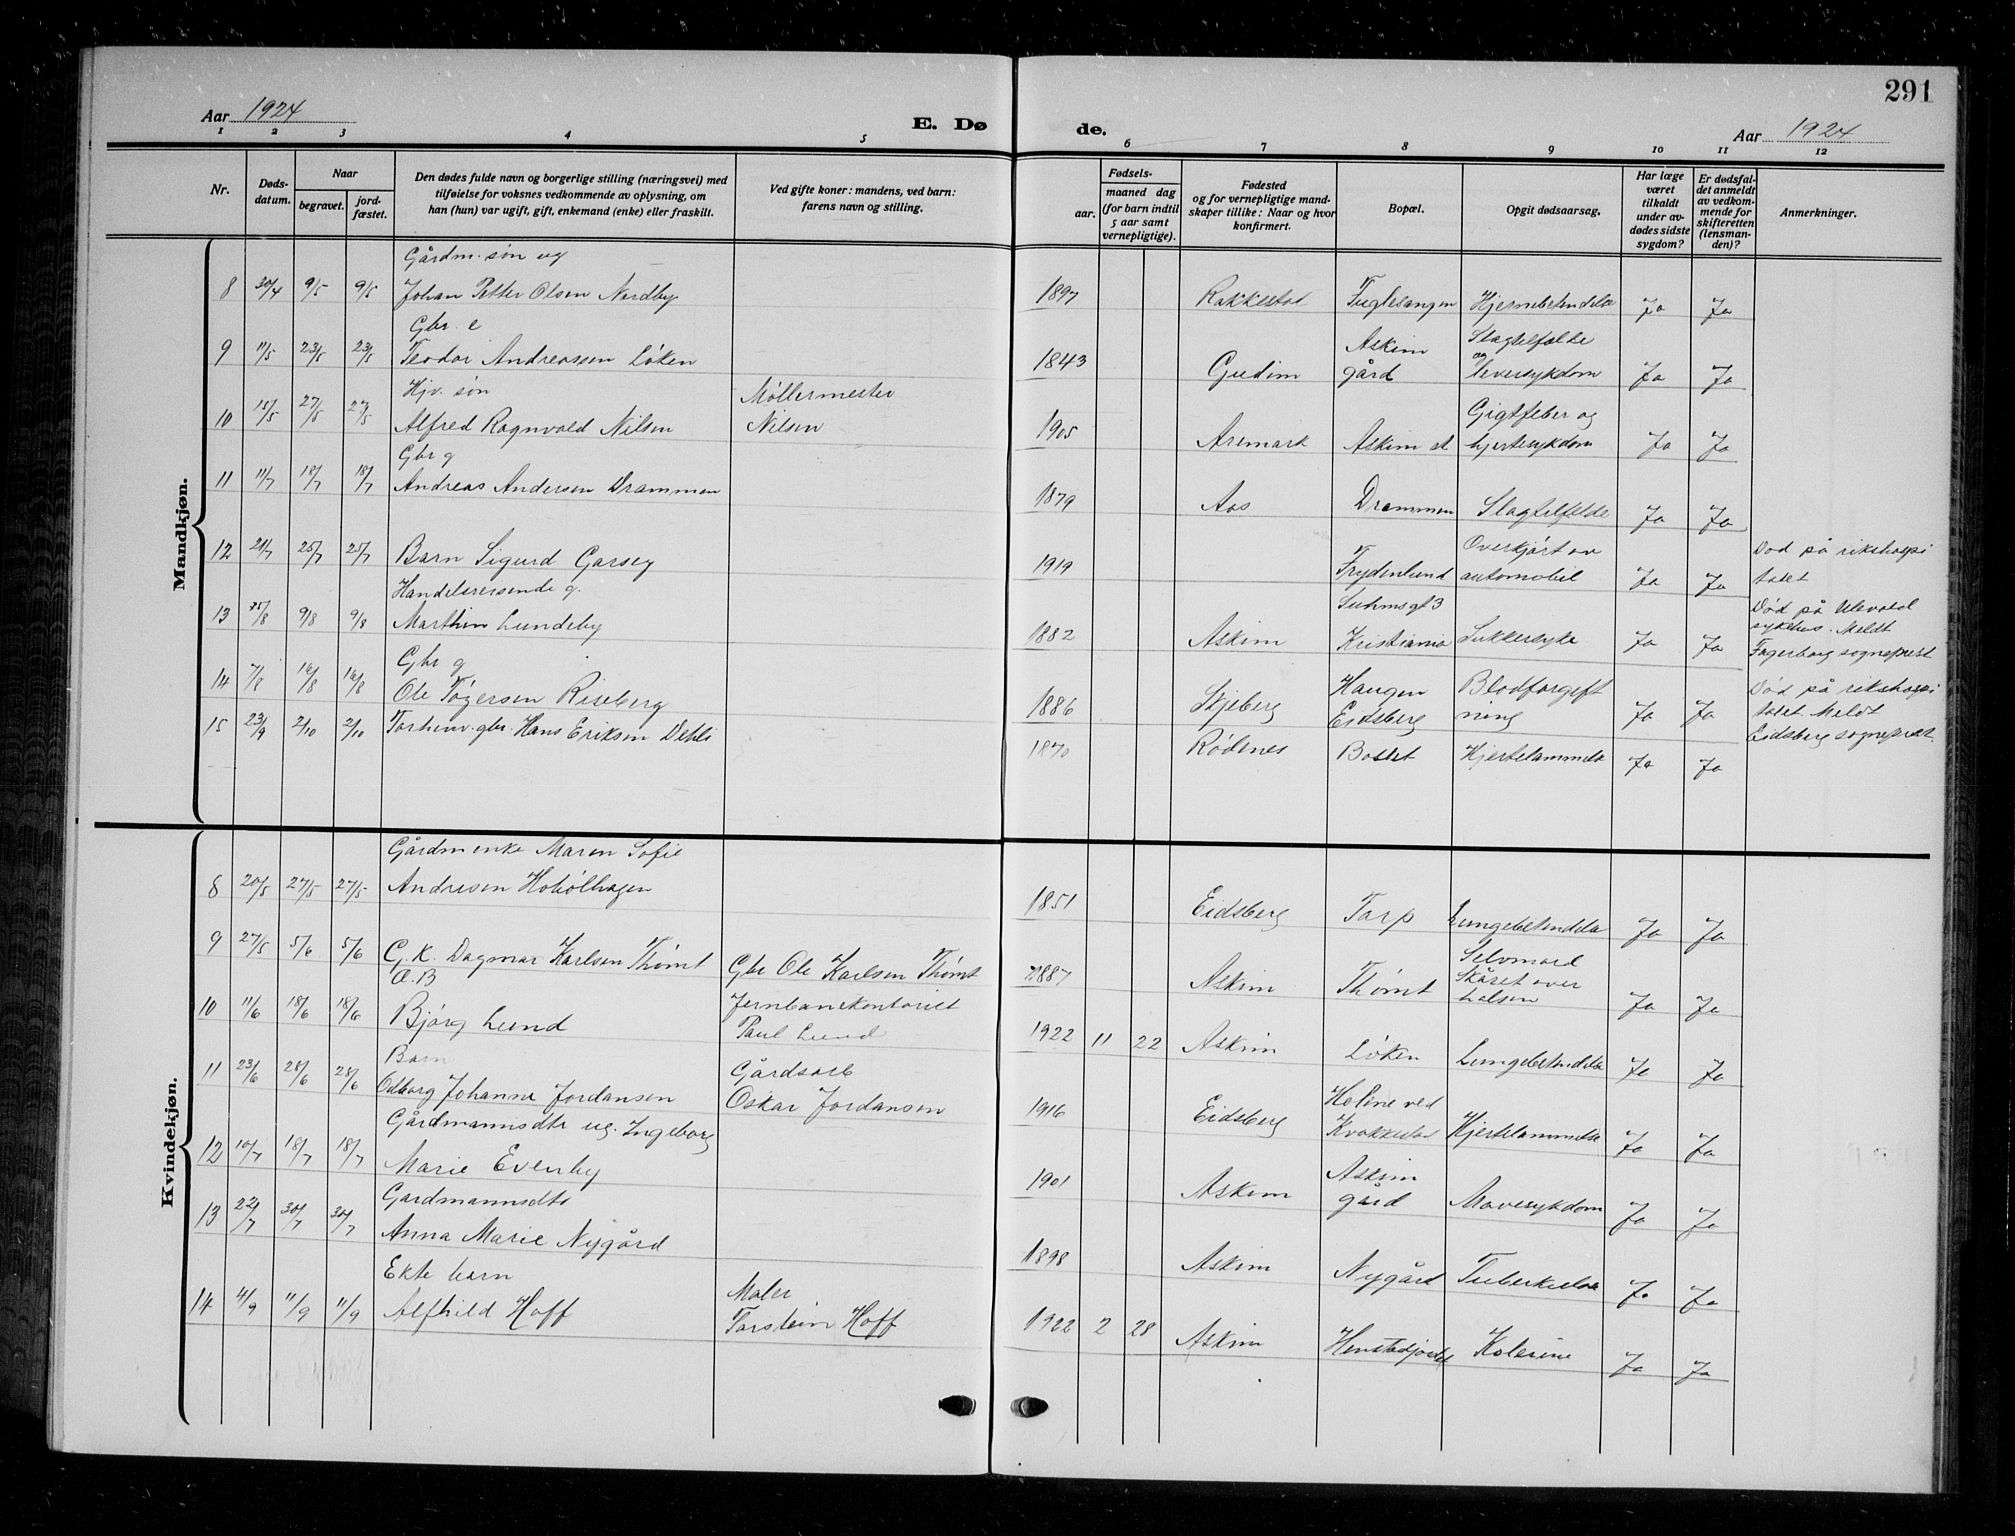 291
Aar 1924
E. Dø
de.
Aar 1924
1 2 3 4 5 6 7 8 9 10 11 12
Nr.
Døds-
datum.
Naar
begravet.
jord-
fæstet.
Den dødes fulde navn og borgerlige stilling (næringsvei) med
tilføielse for voksnes vedkommende av oplysning, om
han (hun) var ugift, gift, enkemand (enke) eller fraskilt.
Ved gifte koner: mandens, ved barn:
farens navn og stilling.
Fødsels-
aar.
maaned dag
(for barn indtil
5 aar samt
vernepligtige).
Fødested
og for vernepligtige mand-
skaper tillike: Naar og hvor
konfirmert.
Bopæl.
Opgit dødsaarsag.
Har læge
været
tilkaldt
under av-
dødes sidste
sygdom?
Er dødsfal-
det anmeldt
av vedkom-
mende for
skifteretten
(lensman-
den)?
Anmerkninger.
Mandkjøn.
Gårdm. søn ug
8 30/4 9/5 9/5 Johan Petter Olsen Nordby 1897 Rakkestad Fuglesangen Hjernebetendelse Ja Ja
Gbr. e
9 11/5 23/5 23/5 Teodor Andreassen Løken 1843 Gudim Askim gård Slagtilfælde og leversykdom Ja Ja
Hjv. søn Møllermester
10 15/5 27/5 27/5 Alfred Ragnvald Nilsen Nilsen 1905 Aremark Askim st Gigtfeber og hjertesykdom Ja Ja
Gbr g
11 11/7 18/7 18/7 Andreas Andersen Drammen 1879 Aas Drammen Slagtilfælde Ja Ja
12 21/7 25/7 25/7 Barn Sigurd Garseg 1919 Frydenlund Overkjørt av automobil Ja Ja Død på rikshospi talet
Handelsreisende g.
13 9/8 9/8 Marthin Lundeby 1882 Askim Suhmsgt 3 Kristiania Sukkersyke Ja Ja Død på Ulevold sykehus. Meldt Fagerborg sogneprest
Gbr g
14 7/8 16/8 16/8 Ole Tøgersen Riseberg 1886 Skjeberg Haugen Eidsberg Blodforgift ning Ja Ja Død på rikshospi talet. Meldt Eidsberg sogneprest.
15 23/9 2/10 2/10 Forhenv. gbr. Hans Eriksen Dehli 1870 Rødenes Hjertelammelse Ja Ja
Kvindekjøn.
Gårdm enke Maren Sofie
8 20/5 27/5 27/5 Andresen Hobølhagen 1851 Eidsberg Torp Lungebetendelse Ja Ja
9 27/5 5/6 5/6 G. K. Dagmar Karlsen Thømt Gbr Ole Karlsen Thømt 1887 Askim Thømt Selvmord Skåret over halsen Ja Ja
Æ. B Jernbanekontorist
10 11/6 18/6 18/6 Bjørg Lund Paul Lund 1922 11 22 Askim Løken Lungebetendelse Ja Ja
Barn Gårdsarb
11 23/6 28/6 28/6 Odborg Johanne Jordansen Oskar Jordansen 1916 Eidsberg ved Hjertelammelse Ja Ja
Gårdmannsdtr ug. Ingeborg
12 10/7 18/7 18/7 Marie Evenby 1901 Askim Askim gård Mavesykdom Ja Ja
Gardmannsdtr
13 22/7 30/7 30/7 Anna Marie Nygård 1898 Askim Nygård Tuberkulose Ja Ja
Ekte barn Maler
14 4/9 11/9 11/9 Alfhild Hoff Torstein Hoff 1922 2 28 Askim Kolerine Ja Ja